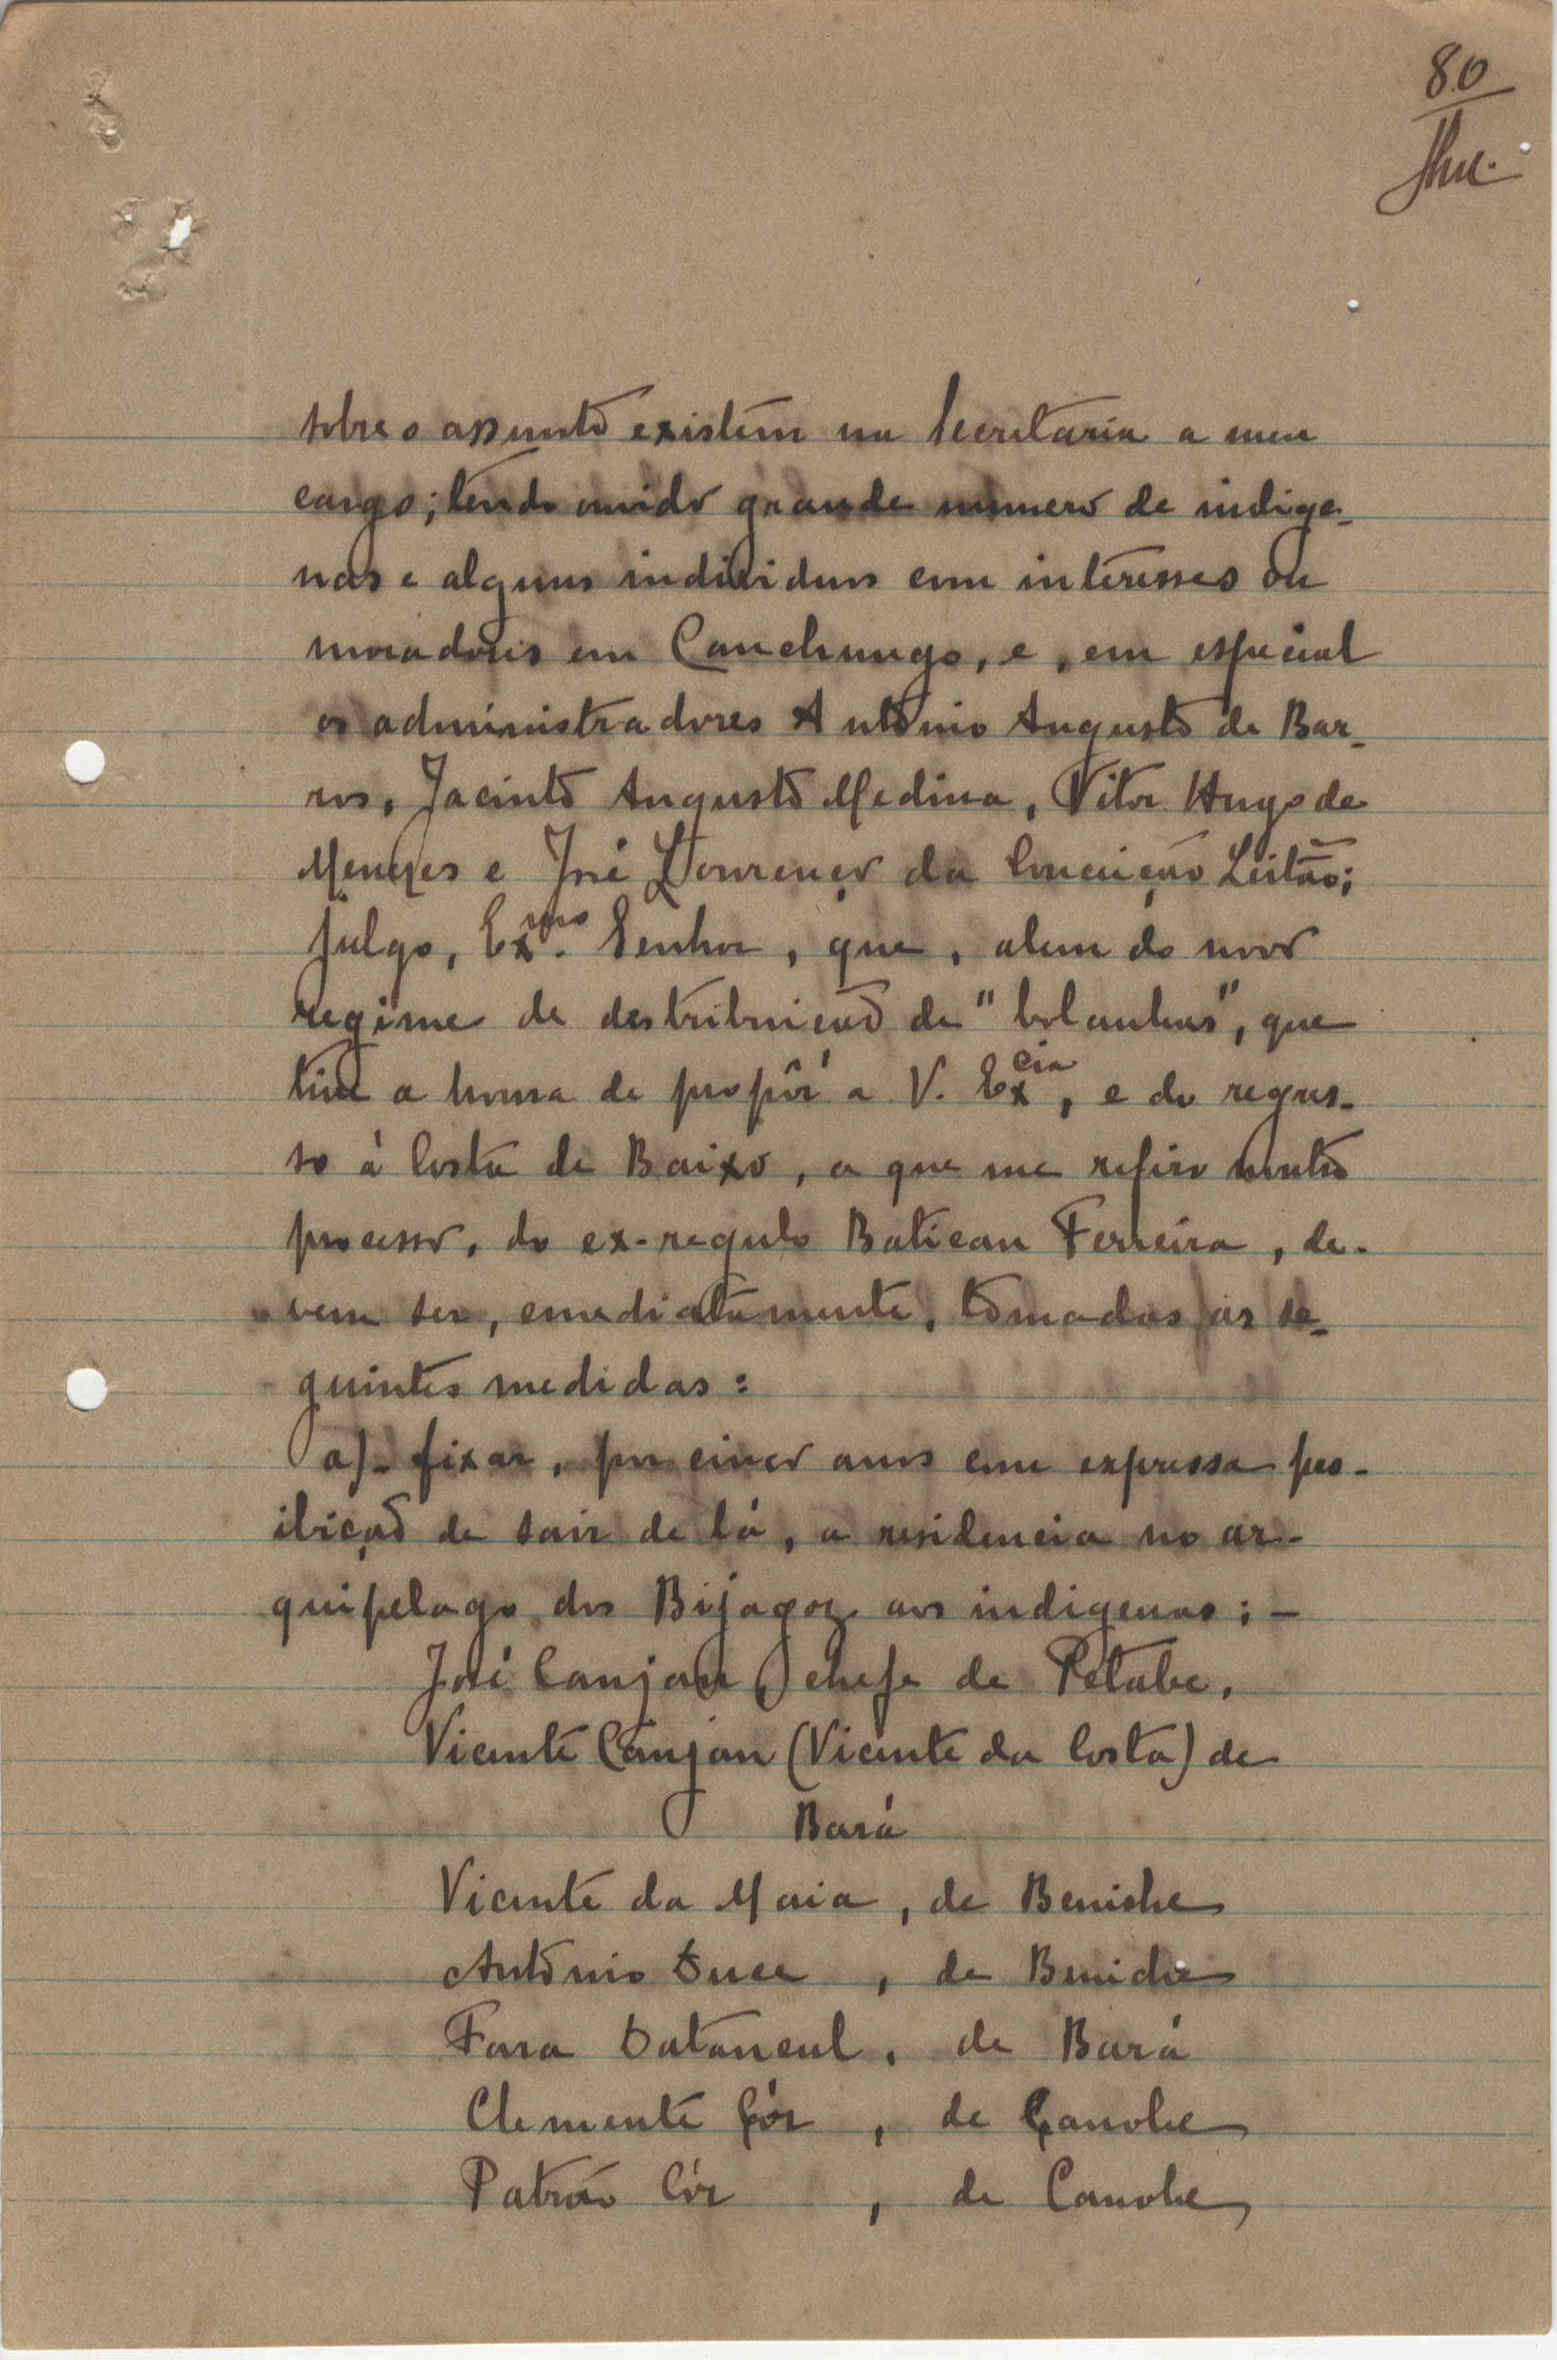 80
sobre o assunto existem na Secretaria a meu
cargo; tendo ouvido grande numero de indige-
nas e alguns individuos com interesses ou
moradores em Canchungo, e, em especial
os administradores António Augusto de Bar-
ros, Jacinto Augusto Medina, Vitor Hugo de
Menezes e José Lourenço da Conceição Leitão;
julgo, Exmo. Senhor, que, alem do novo
regime de destribuição de "bolanhas", que
tive a honra de propôr a V. Excia, e do regres-
so à Costa de Baixo, a que me refiro noutro
processo, do ex-regulo Batican Ferreira, de-
vem ser, emediatamente, tomadas as se-
guintes medidas:
a)- fixar, por cinco anos com expressa pro-
ibição de sair de lá, a residencia no ar-
quipelago dos Bijagoz aos indigenas: -
José Canjan, chefe de Petabe,
Vicente Canjan (Vicente da Costa) de
Bará
Vicente da Maia, de Beniche
António Duce, de Beniche
Fara Datancul, de Bará
Clemente Cór, de Canobe
Patrão Cór, de Canobe